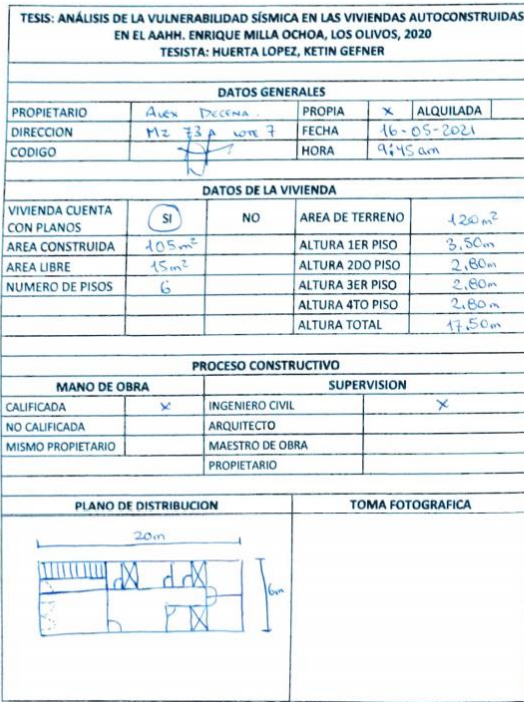 TESIS: ANÁLISIS DE LA VULNERABILIDAD SÍSMICA EN LAS VIVIENDAS AUTOCONSTRUIDAS
EN EL AAHH. ENRIQUE MILLA OCHOA, LOS OLIVOS, 2020
TESISTA: HUERTA LOPEZ, KETIN GEFNER
DATOS GENERALES
PROPIETARIO Alex Decena. PROPIA X ALQUILADA
DIRECCION Mz 73 A lote 7 FECHA 16-05-2021
CODIGO HORA 9:45 am
DATOS DE LA VIVIENDA
VIVIENDA CUENTA CON PLANOS SI NO AREA DE TERRENO 120 m²
AREA CONSTRUIDA 105 m² ALTURA 1ER PISO 3.50m
AREA LIBRE 15 m² ALTURA 2DO PISO 2.80m
NUMERO DE PISOS 6 ALTURA 3ER PISO 2.80m
ALTURA 4TO PISO 2.80m
ALTURA TOTAL 17.50m
PROCESO CONSTRUCTIVO
MANO DE OBRA SUPERVISION
CALIFICADA X INGENIERO CIVIL X
NO CALIFICADA ARQUITECTO
MISMO PROPIETARIO MAESTRO DE OBRA
PROPIETARIO
PLANO DE DISTRIBUCION TOMA FOTOGRAFICA
20m
6m